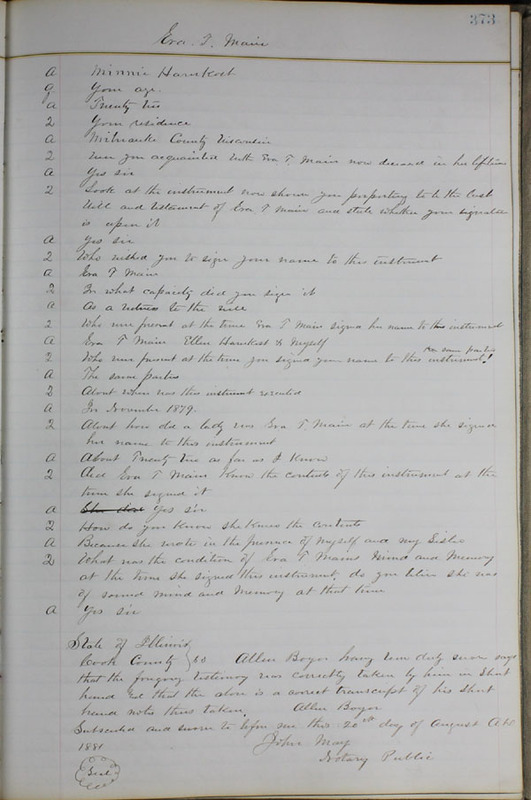 373
Eva T. Main
A Minnie Harnkost
Q Your age.
A Twenty two
Q Your residence
A Milwauke County Wisconsin
Q Were you acquainted with Eva T. Main now deceased in her lifetime
A Yes sir
Q Look at the instrument now shown you purporting to be the Last
Will and testament of Eva T Main and state whether your signature
is upon it
A Yes sir
Q Who wished you to sign your name to this instrument
A Eva T Main
Q In what capacity did you sign it
A As a witness to the will
Q Who were present at the time Eva T Main signed her name to this instrument
A Eva T Main Ellen Harnkost & Myself
Q Who were present at the time you signed your name to this instrument!
the same parties
A The same parties
Q About when was this instrument executed
A In November 1879.
Q About how old a lady was Eva T. Main at the time she signed
her name to this instrument
A About Twenty two as far as I know
Q Did Eva T Main Know the contents of this instrument at the
time she signed it
A She does Yes sir
Q How do you know she knew the contents
A Because she wrote in the presence of myself and my Sister
Q What was the condition of Eva T Mains Mind and Memory
at the time she signed this instrument, do you believe she was
of sound mind and Memory at that time
A Yes sir
State of Illinois
Cook County } SS Allen Boyer having been duly sworn says
that the forgoing testimony was correctly taken by him in Short
hand and that the above is a correct transcript of his short
hand notes thus taken, Allen Boyer
Subscribed and sworn to before me this 20th day of August A.D.
1881 John May
Notary Public
Seal